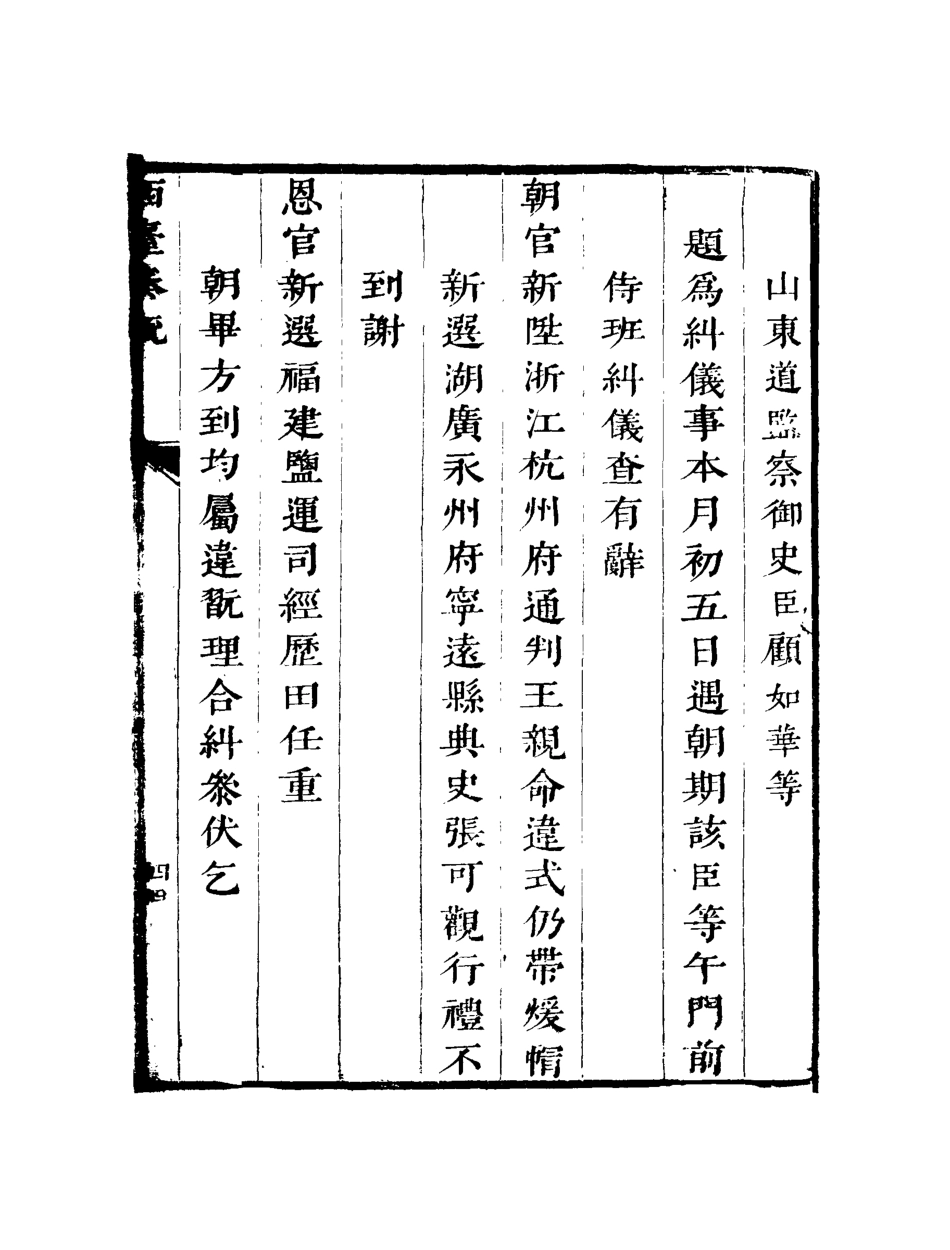 山東道監察御史臣顧如華等
題爲糾儀事本月初五日遇朝期該臣等午門前
侍班糾儀查有辭
朝官新陞浙江杭州府通判王親命違式仍帶煖帽
新選湖廣永州府寧遠縣典史張可觀行禮不
到謝
恩官新選福建鹽運司經歷田任重
朝畢方到均屬違翫理合糾叅伏乞
西臺奏
四